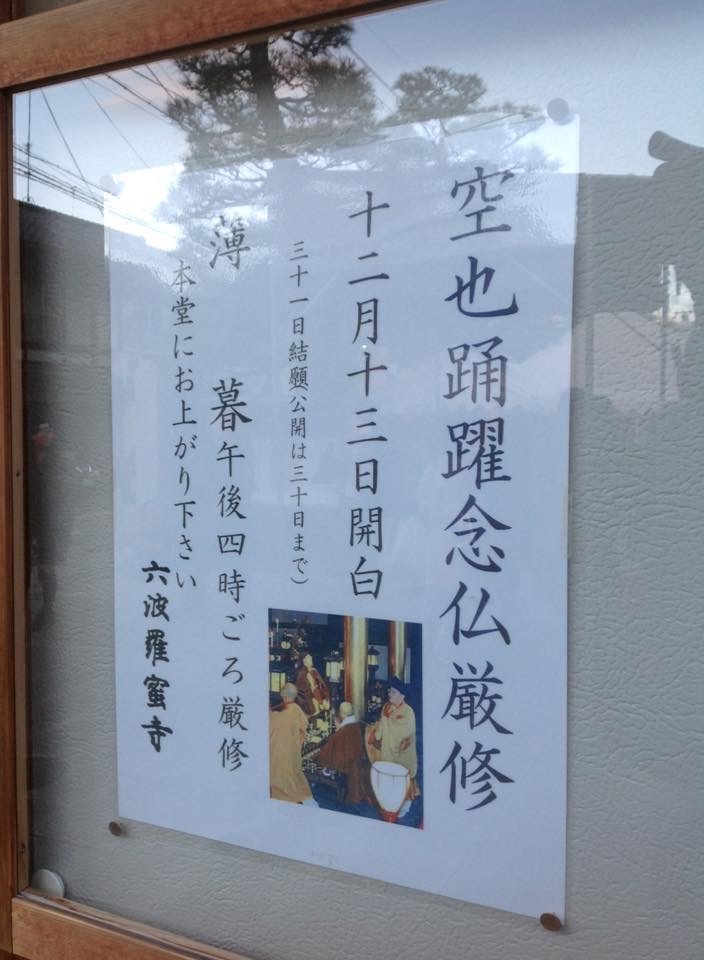 空也踊躍念仏厳修
十二月十三日開白
三十一日結願(公開は三十日まで)
薄　暮午後四時ごろ厳修
本堂にお上がり下さい
六波羅蜜寺